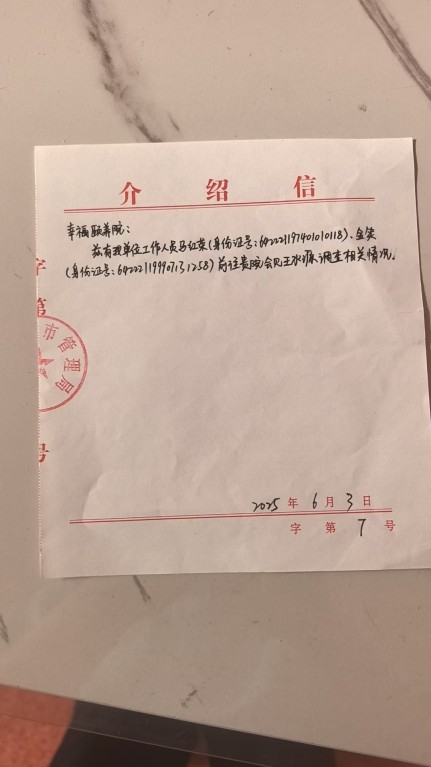 介绍信
幸福颐养院：
兹有我单位工作人员马红英(身份证号：642221197401010118)、金笑
(身份证号：642221199907131258)前往贵院会见王水源调查相关情况。
字
第
市管理局
号
2025年6月3日
字 第 7 号